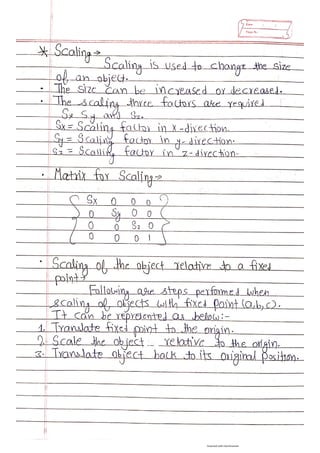 * Scaling →
Scaling is used to change the size
of an object.
• The size can be increased or decreased.
• The scaling three factors are required
Sx Sy and Sz.
Sx = Scaling factor in x-direction.
Sy = Scaling factor in y-direction.
Sz = Scaling factor in z-direction.
• Matrix for Scaling →
Sx 0 0 0
0 Sy 0 0
0 0 Sz 0
0 0 0 1
• Scaling of the object relative to a fixed
point →
Following are steps performed when
scaling of objects with fixed point (a,b,c).
It can be represented as below:-
1. Translate fixed point to the origin.
2. Scale the object relative to the origin.
3. Translate object back to its original position.